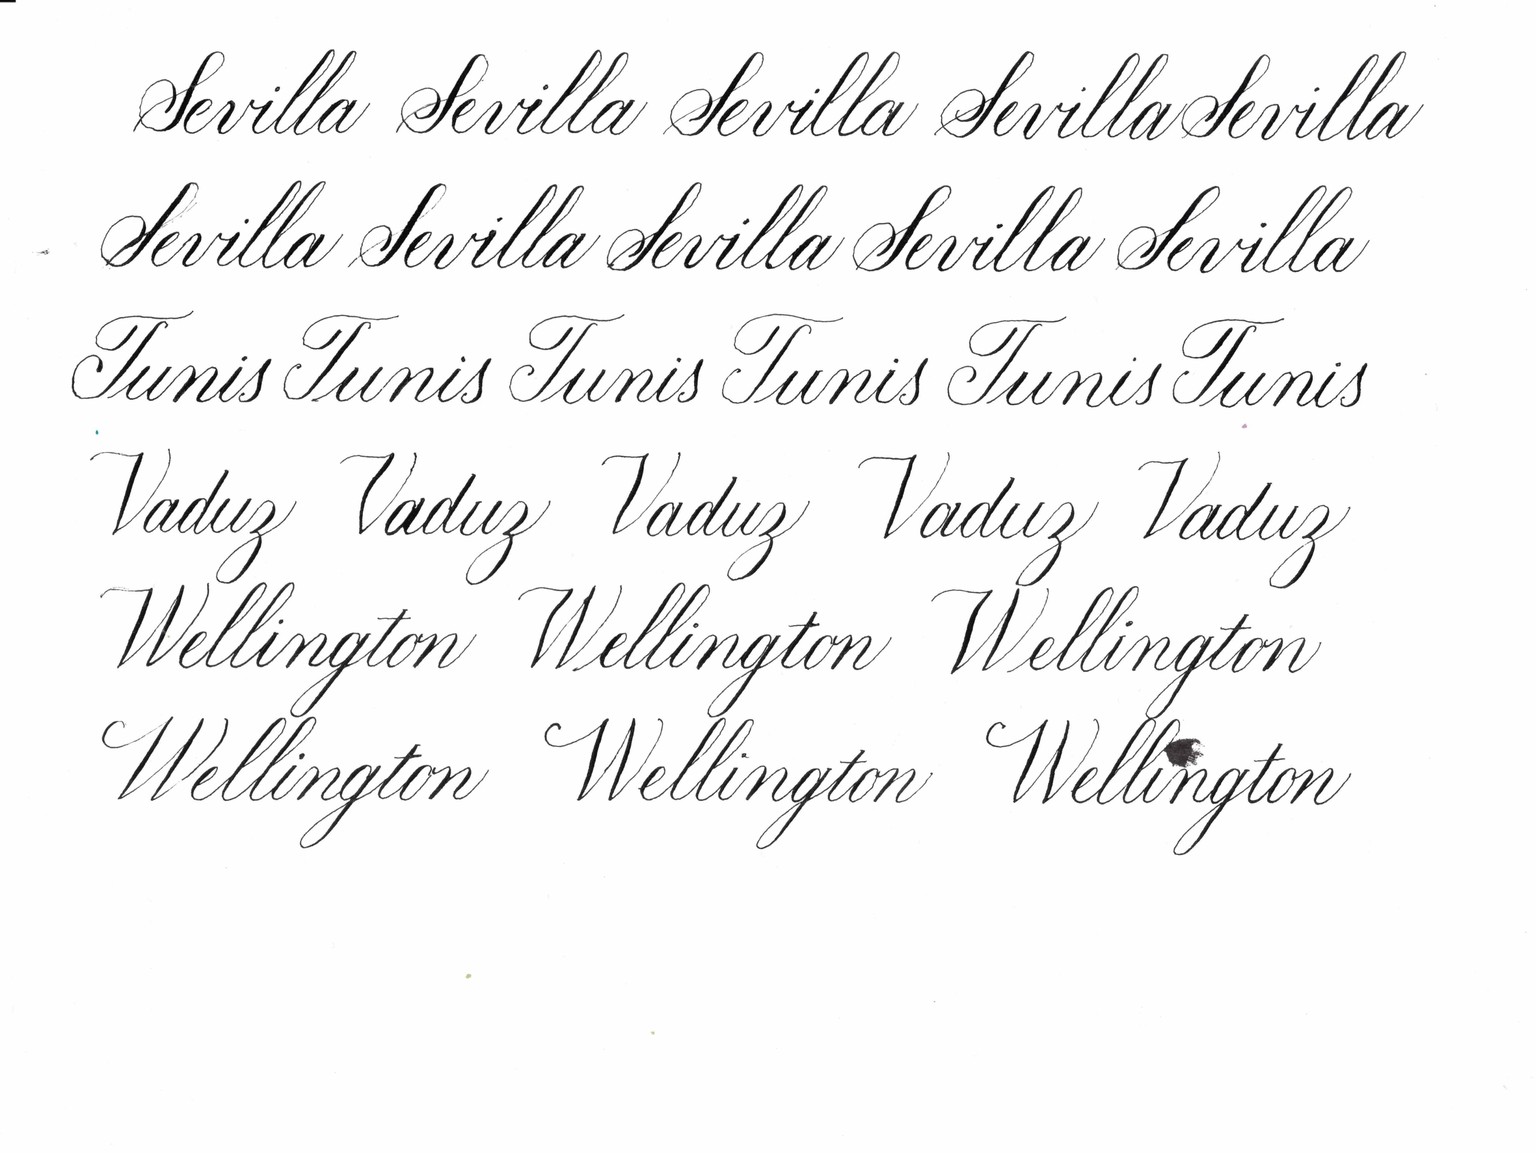 Sevilla Sevilla Sevilla Sevilla Sevilla
Sevilla Sevilla Sevilla Sevilla Sevilla
Tunis Tunis Tunis Tunis Tunis Tunis
Vaduz Vaduz Vaduz Vaduz Vaduz
Wellington Wellington Wellington
Wellington Wellington Wellington